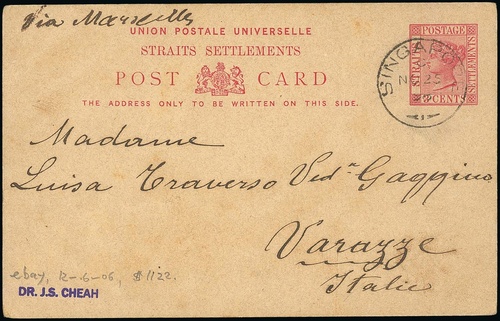 Via Marseilles
UNION POSTALE UNIVERSELLE
STRAITS SETTLEMENTS
POST CARD
THE ADDRESS ONLY TO BE WRITTEN ON THIS SIDE.
POSTAGE
STRAITS
CENTS
SINGAPORE
25
Madame
Luisa Traverso Ved.ª Gaggino
Varazze
Italie
ebay, 12-6-06, $1122.
DR. J.S. CHEAH